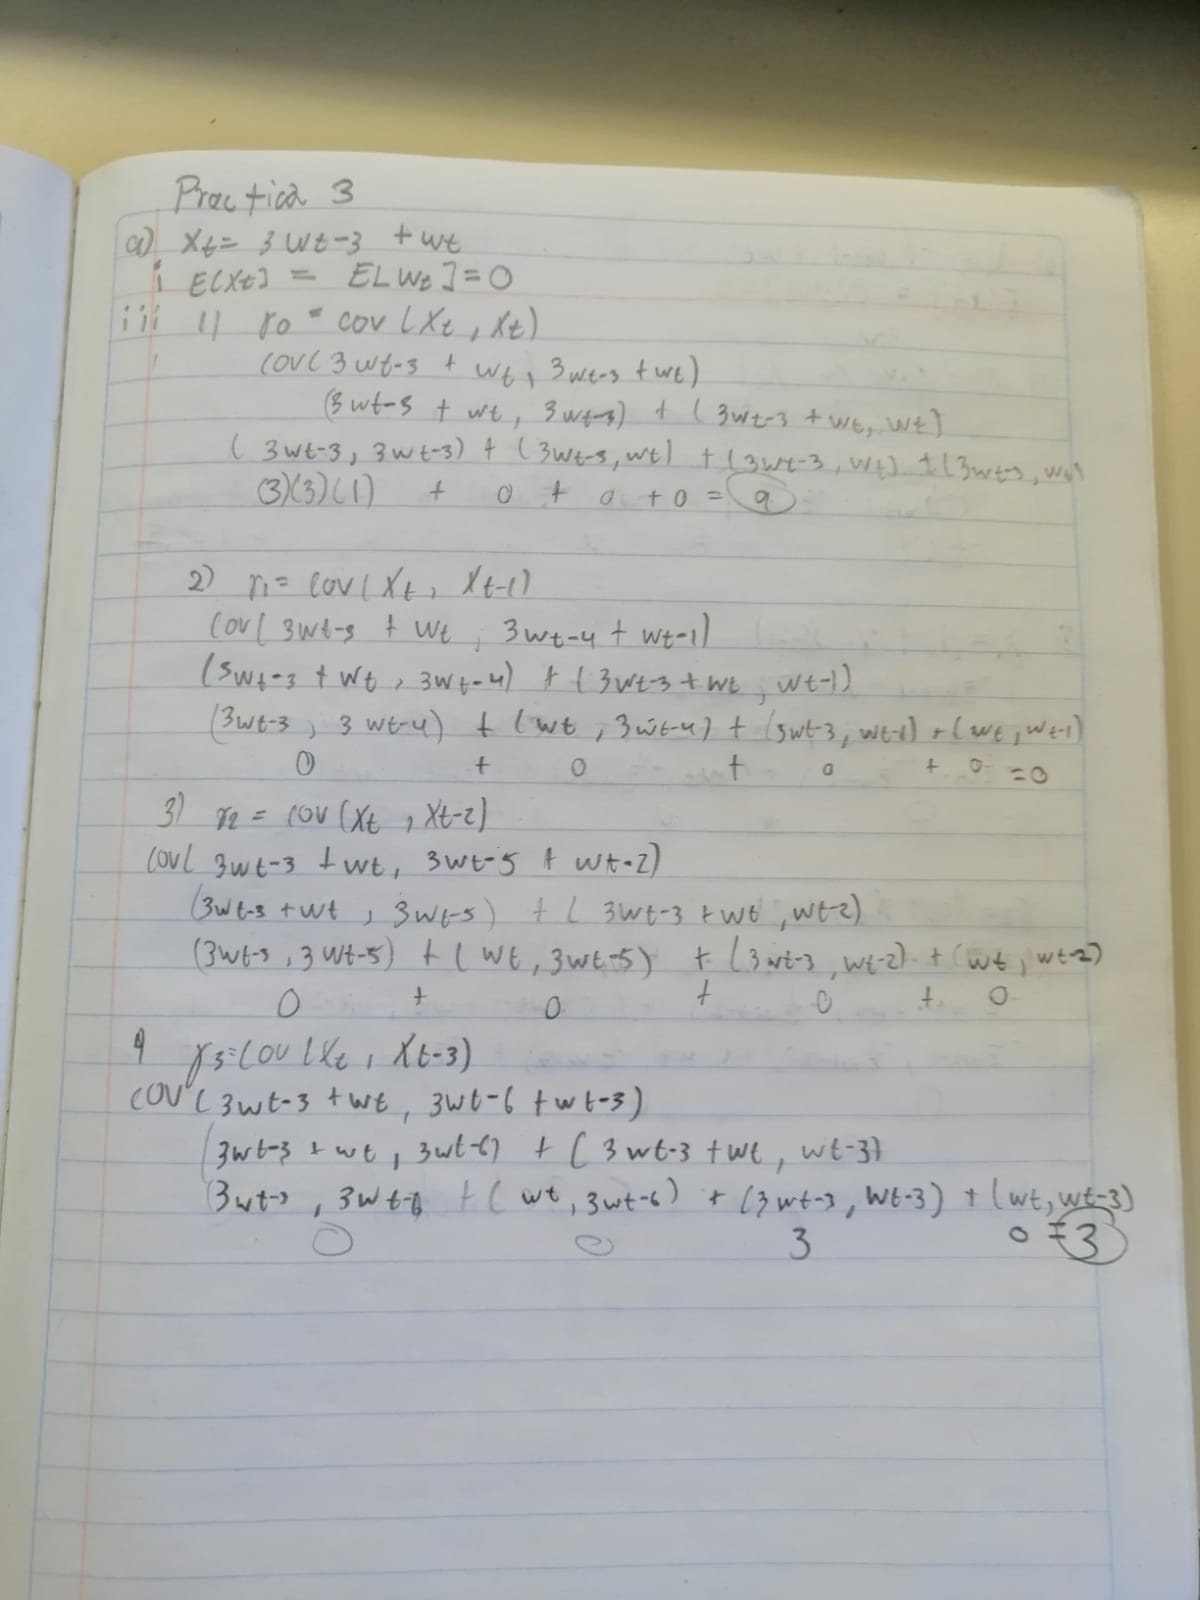 Practica 3
a) Xt= 3 wt-3 + wt
i E[Xt] = E[Wt]=0
iii 1) γ0 = cov (Xt, Xt)
cov( 3wt-3 + wt, 3wt-3 + wt)
(3wt-3 + wt, 3wt-3) + (3wt-3 + wt, wt)
(3wt-3, 3wt-3) + (3wt-3, wt) + (3wt-3, wt) + (3wt-3, wt)
(3)(3)(1) + 0 + 0 + 0 = 9
2) γ1 = cov( Xt, Xt-1)
cov( 3wt-3 + wt, 3wt-4 + wt-1)
(3wt-3 + wt, 3wt-4) + (3wt-3 + wt, wt-1)
(3wt-3, 3wt-4) + (wt, 3wt-4) + (3wt-3, wt-1) + (wt, wt-1)
0 + 0 + 0 + 0 = 0
3) γ2 = cov (Xt, Xt-2)
cov( 3wt-3 + wt, 3wt-5 + wt-2)
(3wt-3 + wt, 3wt-5) + ( 3wt-3 + wt, wt-2)
(3wt-3, 3wt-5) + (wt, 3wt-5) + (3wt-3, wt-2) + (wt, wt-2)
0 + 0 + 0 + 0
4 γ3 = cov (Xt, Xt-3)
cov (3wt-3 + wt, 3wt-6 + wt-3)
(3wt-3 + wt, 3wt-6) + (3wt-3 + wt, wt-3)
(3wt-3, 3wt-6 + (wt, 3wt-6) + (3wt-3, wt-3) + (wt, wt-3)
0 0 3 0 = 3